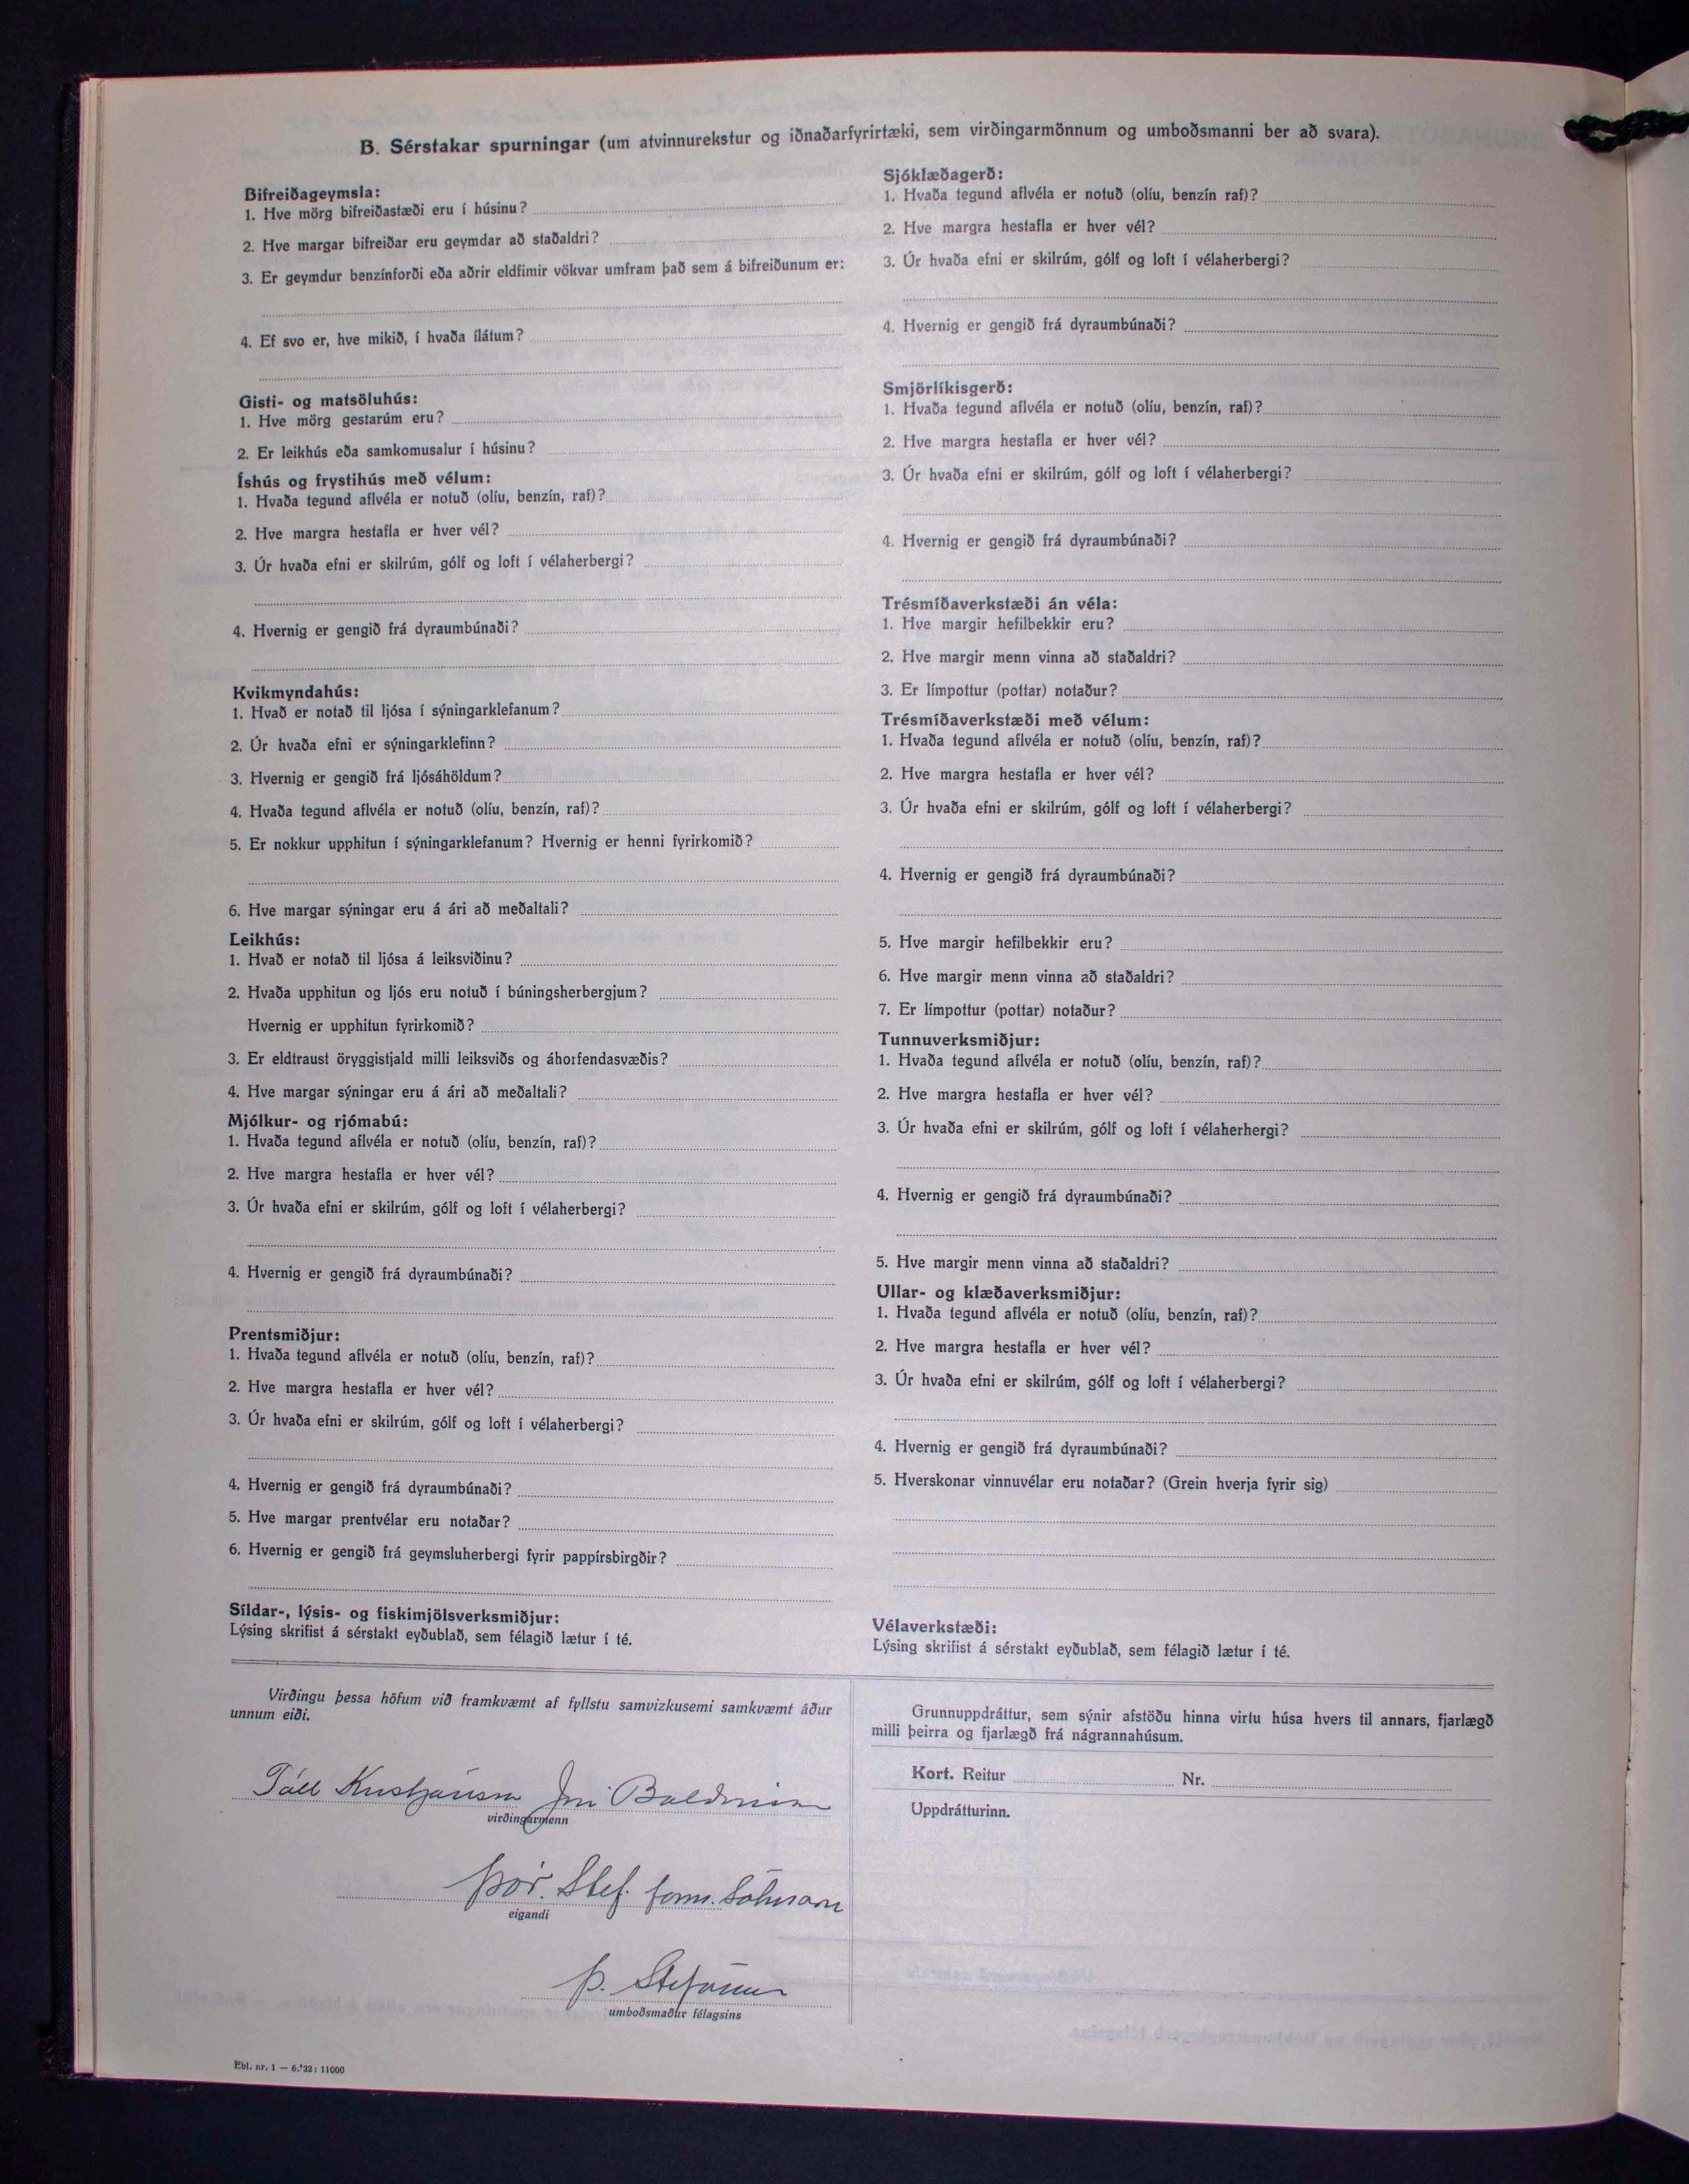 B. Sérstakar spurningar (um atvinnurekstur og iðnaðarfyrirtæki, sem virðingarmönnum og umboðsmanni ber að svara).
Bifreiðageymsla:
1. Hve mörg bifreiðastæði eru í húsinu?
2. Hve margar bifreiðar eru geymdar að staðaldri?
3. Er geymdur benzínforði eða aðrir eldfimir vökvar umfram það sem á bifreiðunum er:
4. Ef svo er, hve mikið, í hvaða ílátum?
Gisti- og matsöluhús:
1. Hve mörg gestarúm eru?
2. Er leikhús eða samkomusalur í húsinu?
Íshús og frystihús með vélum:
1. Hvaða tegund aflvéla er notuð (olíu, benzín, raf)?
2. Hve margra hestafla er hver vél?
3. Úr hvaða efni er skilrúm, gólf og loft í vélaherbergi?
4. Hvernig er gengið frá dyraumbúnaði?
Kvikmyndahús:
1. Hvað er notað til ljósa í sýningarklefanum?
2. Úr hvaða efni er sýningarklefinn?
3. Hvernig er gengið frá ljósáhöldum?
4. Hvaða tegund aflvéla er notuð (olíu, benzín, raf)?
5. Er nokkur upphitun í sýningarklefanum? Hvernig er henni fyrirkomið?
6. Hve margar sýningar eru á ári að meðaltali?
Leikhús:
1. Hvað er notað til ljósa á leiksviðinu?
2. Hvaða upphitun og ljós eru notuð í búningsherbergjum?
Hvernig er upphitun fyrirkomið?
3. Er eldtraust öryggistjald milli leiksviðs og áhorfendasvæðis?
4. Hve margar sýningar eru á ári að meðaltali?
Mjólkur- og rjómabú:
1. Hvaða tegund aflvéla er notuð (olíu, benzín, raf)?
2. Hve margra hestafla er hver vél?
3. Úr hvaða efni er skilrúm, gólf og loft í vélaherbergi?
4. Hvernig er gengið frá dyraumbúnaði?
Prentsmiðjur:
1. Hvaða tegund aflvéla er notuð (olíu, benzín, raf)?
2. Hve margra hestafla er hver vél?
3. Úr hvaða efni er skilrúm, gólf og loft í vélaherbergi?
4. Hvernig er gengið frá dyraumbúnaði?
5. Hve margar prentvélar eru notaðar?
6. Hvernig er gengið frá geymsluherbergi fyrir pappírsbirgðir?
Síldar-, lýsis- og fiskimjölsverksmiðjur:
Lýsing skrifist á sérstakt eyðublað, sem félagið lætur í té.
Sjóklæðagerð:
1. Hvaða tegund aflvéla er notuð (olíu, benzín raf)?
2. Hve margra hestafla er hver vél?
3. Úr hvaða efni er skilrúm, gólf og loft í vélaherbergi?
4. Hvernig er gengið frá dyraumbúnaði?
Smjörlíkisgerð:
1. Hvaða tegund aflvéla er notuð (olíu, benzín, raf)?
2. Hve margra hestafla er hver vél?
3. Úr hvaða efni er skilrúm, gólf og loft í vélaherbergi?
4. Hvernig er gengið frá dyraumbúnaði?
Trésmíðaverkstæði án véla:
1. Hve margir hefilbekkir eru?
2. Hve margir menn vinna að staðaldri?
3. Er límpottur (pottar) notaður?
Trésmíðaverkstæði með vélum:
1. Hvaða tegund aflvéla er notuð (olíu, benzín, raf)?
2. Hve margra hestafla er hver vél?
3. Úr hvaða efni er skilrúm, gólf og loft í vélaherbergi?
4. Hvernig er gengið frá dyraumbúnaði?
5. Hve margir hefilbekkir eru?
6. Hve margir menn vinna að staðaldri?
7. Er límpottur (pottar) notaður?
Tunnuverksmiðjur:
1. Hvaða tegund aflvéla er notuð (olíu, benzín, raf)?
2. Hve margra hestafla er hver vél?
3. Úr hvaða efni er skilrúm, gólf og loft í vélaherhergi?
4. Hvernig er gengið frá dyraumbúnaði?
5. Hve margir menn vinna að staðaldri?
Ullar- og klæðaverksmiðjur:
1. Hvaða tegund aflvéla er notuð (olíu, benzín, raf)?
2. Hve margra hestafla er hver vél?
3. Úr hvaða efni er skilrúm, gólf og loft í vélaherbergi?
4. Hvernig er gengið frá dyraumbúnaði?
5. Hverskonar vinnuvélar eru notaðar? (Grein hverja fyrir sig)
Vélaverkstæði:
Lýsing skrifist á sérstakt eyðublað, sem félagið lætur í té.
Virðingu þessa höfum við framkvæmt af fyllstu samvizkusemi samkvæmt áður
unnum eiði.
Páll Kristjánsson Jón Baldvinsson
virðingarmenn
Þór. Stef. form. Sóknarn
eigandi
Þ. Stefánsson
umboðsmaður félagsins
Grunnuppdráttur, sem sýnir afstöðu hinna virtu húsa hvers til annars, fjarlægð
milli þeirra og fjarlægð frá nágrannahúsum.
Kort. Reitur Nr.
Uppdrátturinn.
Ebl. nr. 1 — 6.'32: 11000